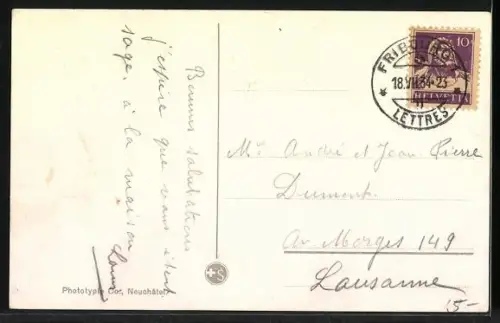 Bonnes salutations
j'espère que vous êtes
sages à la maison
Phototypie Co, Neuchâtel
10
FRIBOURG 1
18.VII.34-23
HELVETIA
LETTRES
Mrs André et Jean Pierre
Dumont
Av Morges 149
Lausanne
15-